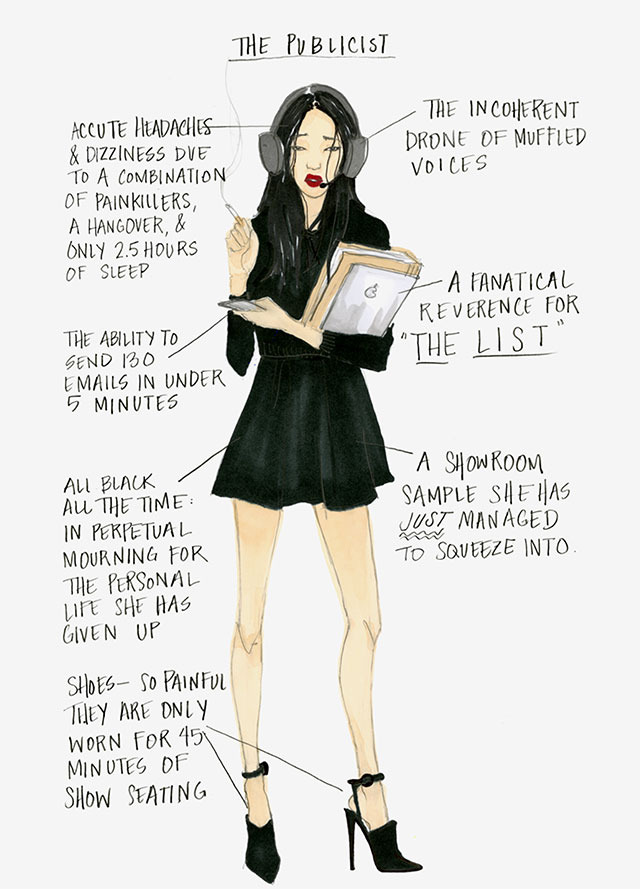 THE PUBLICIST
ACCUTE HEADACHES
& DIZZINESS DUE
TO A COMBINATION
OF PAINKILLERS,
A HANGOVER, &
ONLY 2.5 HOURS
OF SLEEP
THE INCOHERENT
DRONE OF MUFFLED
VOICES
A FANATICAL
REVERENCE FOR
"THE LIST"
THE ABILITY TO
SEND 130
EMAILS IN UNDER
5 MINUTES
A SHOWROOM
SAMPLE SHE HAS
JUST MANAGED
TO SQUEEZE INTO.
ALL BLACK
ALL THE TIME:
IN PERPETUAL
MOURNING FOR
THE PERSONAL
LIFE SHE HAS
GIVEN UP
SHOES— SO PAINFUL
THEY ARE ONLY
WORN FOR 45
MINUTES OF
SHOW SEATING